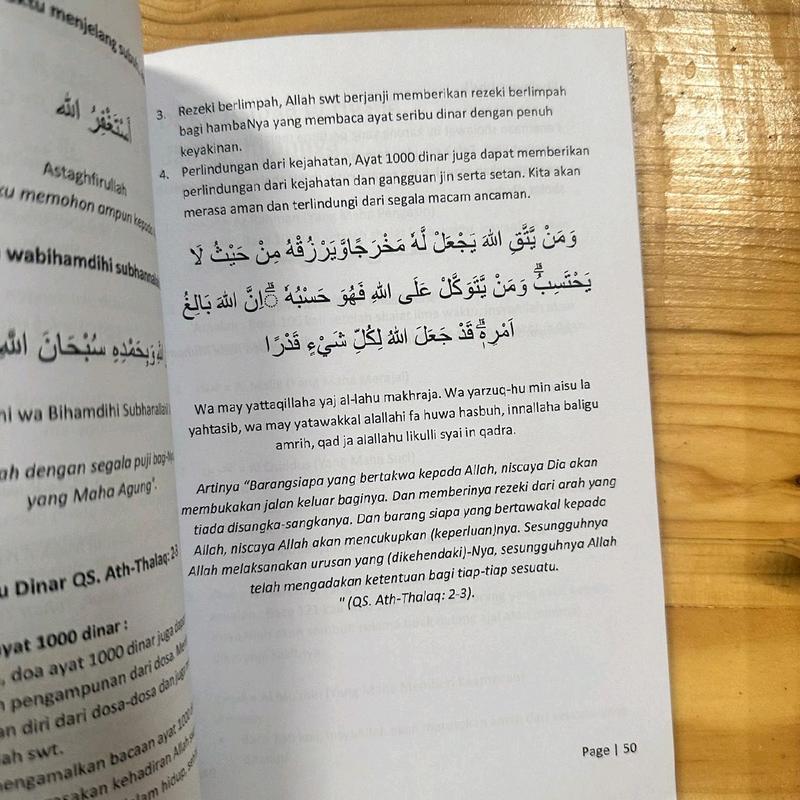 menjelang
أَسْتَغْفِرُ الله
Astaghfirullah
memohon ampun kepada
wabihamdihi
وَبِحَمْدِهِ سُبْحَانَ اللهِ
wa Bihamdihi
dengan segala puji
yang Maha Agung".
Dinar QS. Ath-Thalaq:
ayat 1000 dinar :
doa ayat 1000 dinar juga
pengampunan dari dosa.
diri dari dosa-dosa dan
swt.
mengamalkan bacaan ayat
kehadiran Allah
hidup,
3. Rezeki berlimpah, Allah swt berjanji memberikan rezeki berlimpah
bagi hambaNya yang membaca ayat seribu dinar dengan penuh
keyakinan.
4. Perlindungan dari kejahatan, Ayat 1000 dinar juga dapat memberikan
perlindungan dari kejahatan dan gangguan jin serta setan. Kita akan
merasa aman dan terlindungi dari segala macam ancaman.
وَمَنْ يَّتَّقِ اللهَ يَجْعَلْ لَّهٗ مَخْرَجًاوَّيَرْزُقْهُ مِنْ حَيْثُ لَا
يَحْتَسِبُۗ وَمَنْ يَّتَوَكَّلْ عَلَى اللهِ فَهُوَ حَسْبُهٗ ۗاِنَّ اللهَ بَالِغُ
اَمْرِهٖۗ قَدْ جَعَلَ اللهُ لِكُلِّ شَيْءٍ قَدْرًا
Wa may yattaqillaha yaj al-lahu makhraja. Wa yarzuq-hu min aisu la
yahtasib, wa may yatawakkal alallahi fa huwa hasbuh, innallaha baligu
amrih, qad ja alallahu likulli syai in qadra.
Artinya "Barangsiapa yang bertakwa kepada Allah, niscaya Dia akan
membukakan jalan keluar baginya. Dan memberinya rezeki dari arah yang
tiada disangka-sangkanya. Dan barang siapa yang bertawakal kepada
Allah, niscaya Allah akan mencukupkan (keperluan)nya. Sesungguhnya
Allah melaksanakan urusan yang (dikehendaki)-Nya, sesungguhnya Allah
telah mengadakan ketentuan bagi tiap-tiap sesuatu.
" (QS. Ath-Thalaq: 2-3).
Page | 50